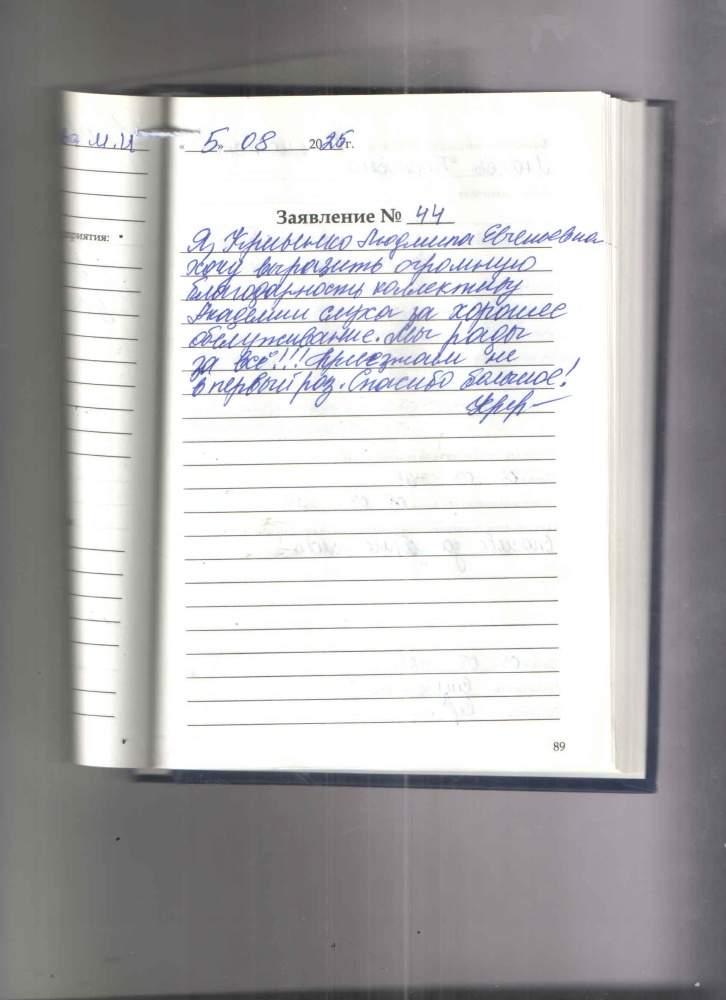 М.И
« 5 » 08 2025г.
Заявление № 44
приятия:
Я, Людмила Евгеньевна
хочу выразить огромную
благодарность коллективу
Академии слуха за хорошее
обслуживание. Мы рады
за всё!!! Приезжаем не
в первый раз. Спасибо большое!
89